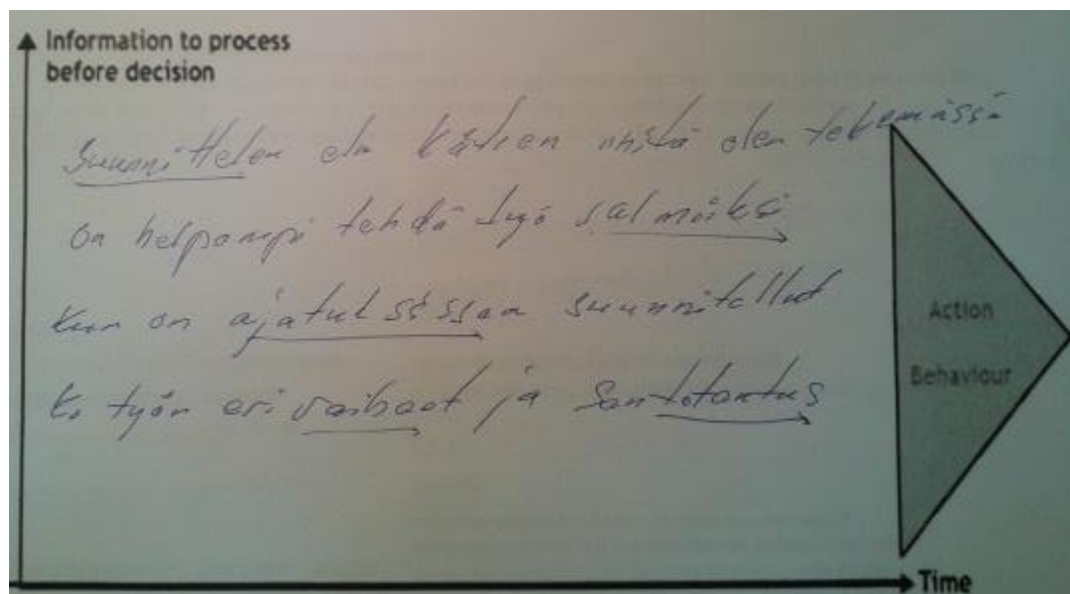 Information to process
before decision
Suunnittelen eln kätien mitä olen tekemässä
on helpompi tehdä työ salmiiksi
kun on ajatuksissaan suunnitellut
ko työn eri vaiheet ja
Action
Behaviour
Time